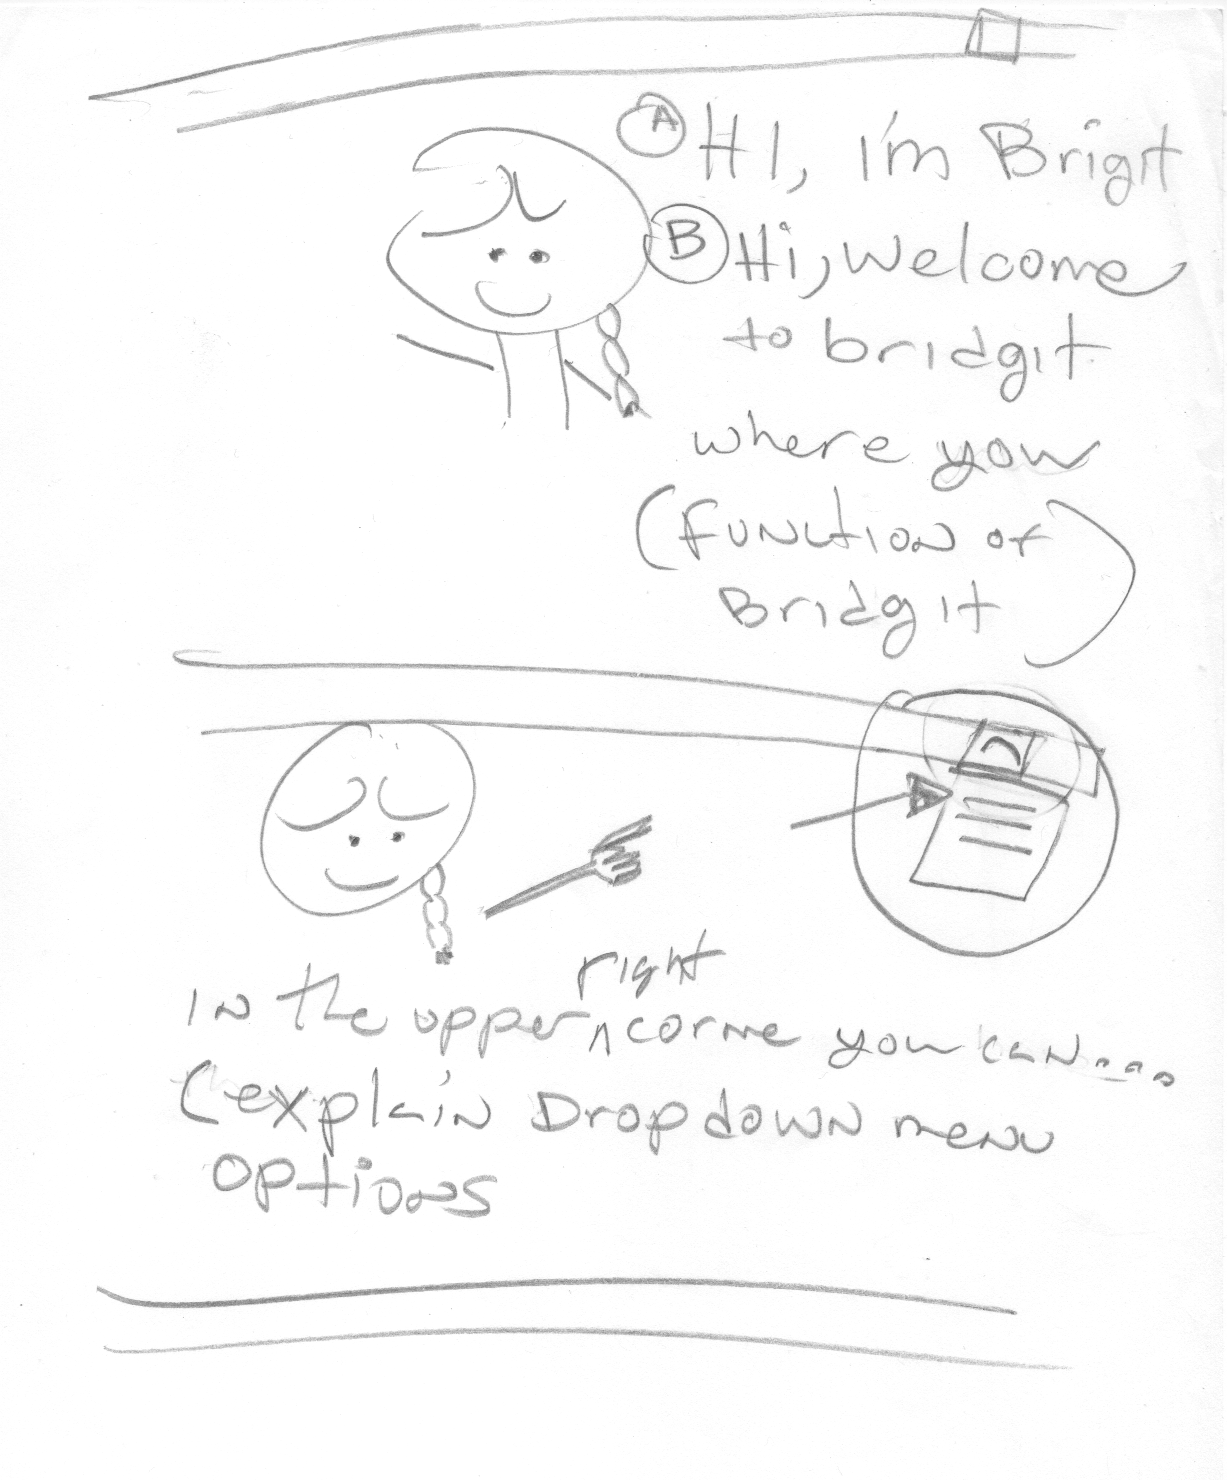 A HI, I'm Brigit
B Hi, Welcome
to bridgit
where you
(Function of
Bridgit)
right
in the upper ^ corne you can....
(explain Dropdown menu
options